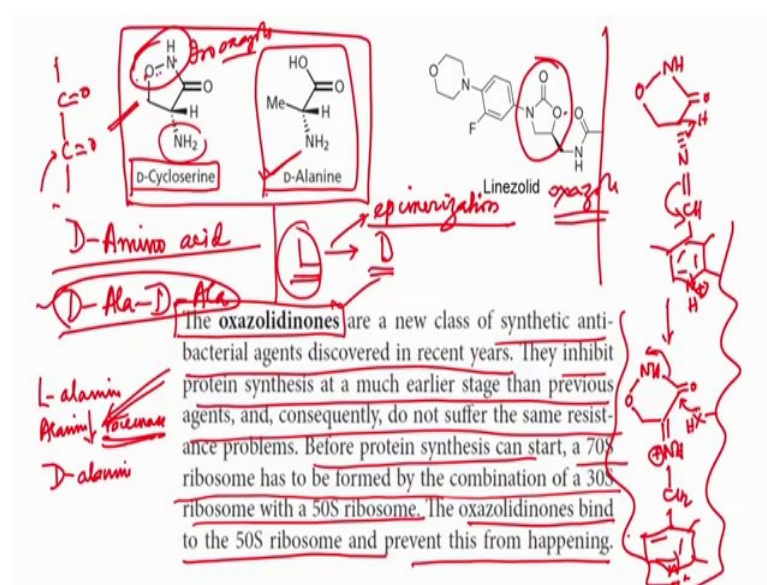 Isooxazole
H
O-N
HO
O
O
C=O
O
H
Me
H
NH2
NH2
C=O
D-Cycloserine
D-Alanine
O
N
F
N
O
O
O
N
H
Linezolid
O
NH
O
H
N
CH
N
H
epimerization
D-Amino acid
L → D
D-Ala-D-Ala
The oxazolidinones are a new class of synthetic anti-
bacterial agents discovered in recent years. They inhibit
protein synthesis at a much earlier stage than previous
agents, and, consequently, do not suffer the same resist-
ance problems. Before protein synthesis can start, a 70S
ribosome has to be formed by the combination of a 30S
ribosome with a 50S ribosome. The oxazolidinones bind
to the 50S ribosome and prevent this from happening.
L-alanin
Alanin racemase
D-alanin
NH
O
O
HX
NH
CH2
N